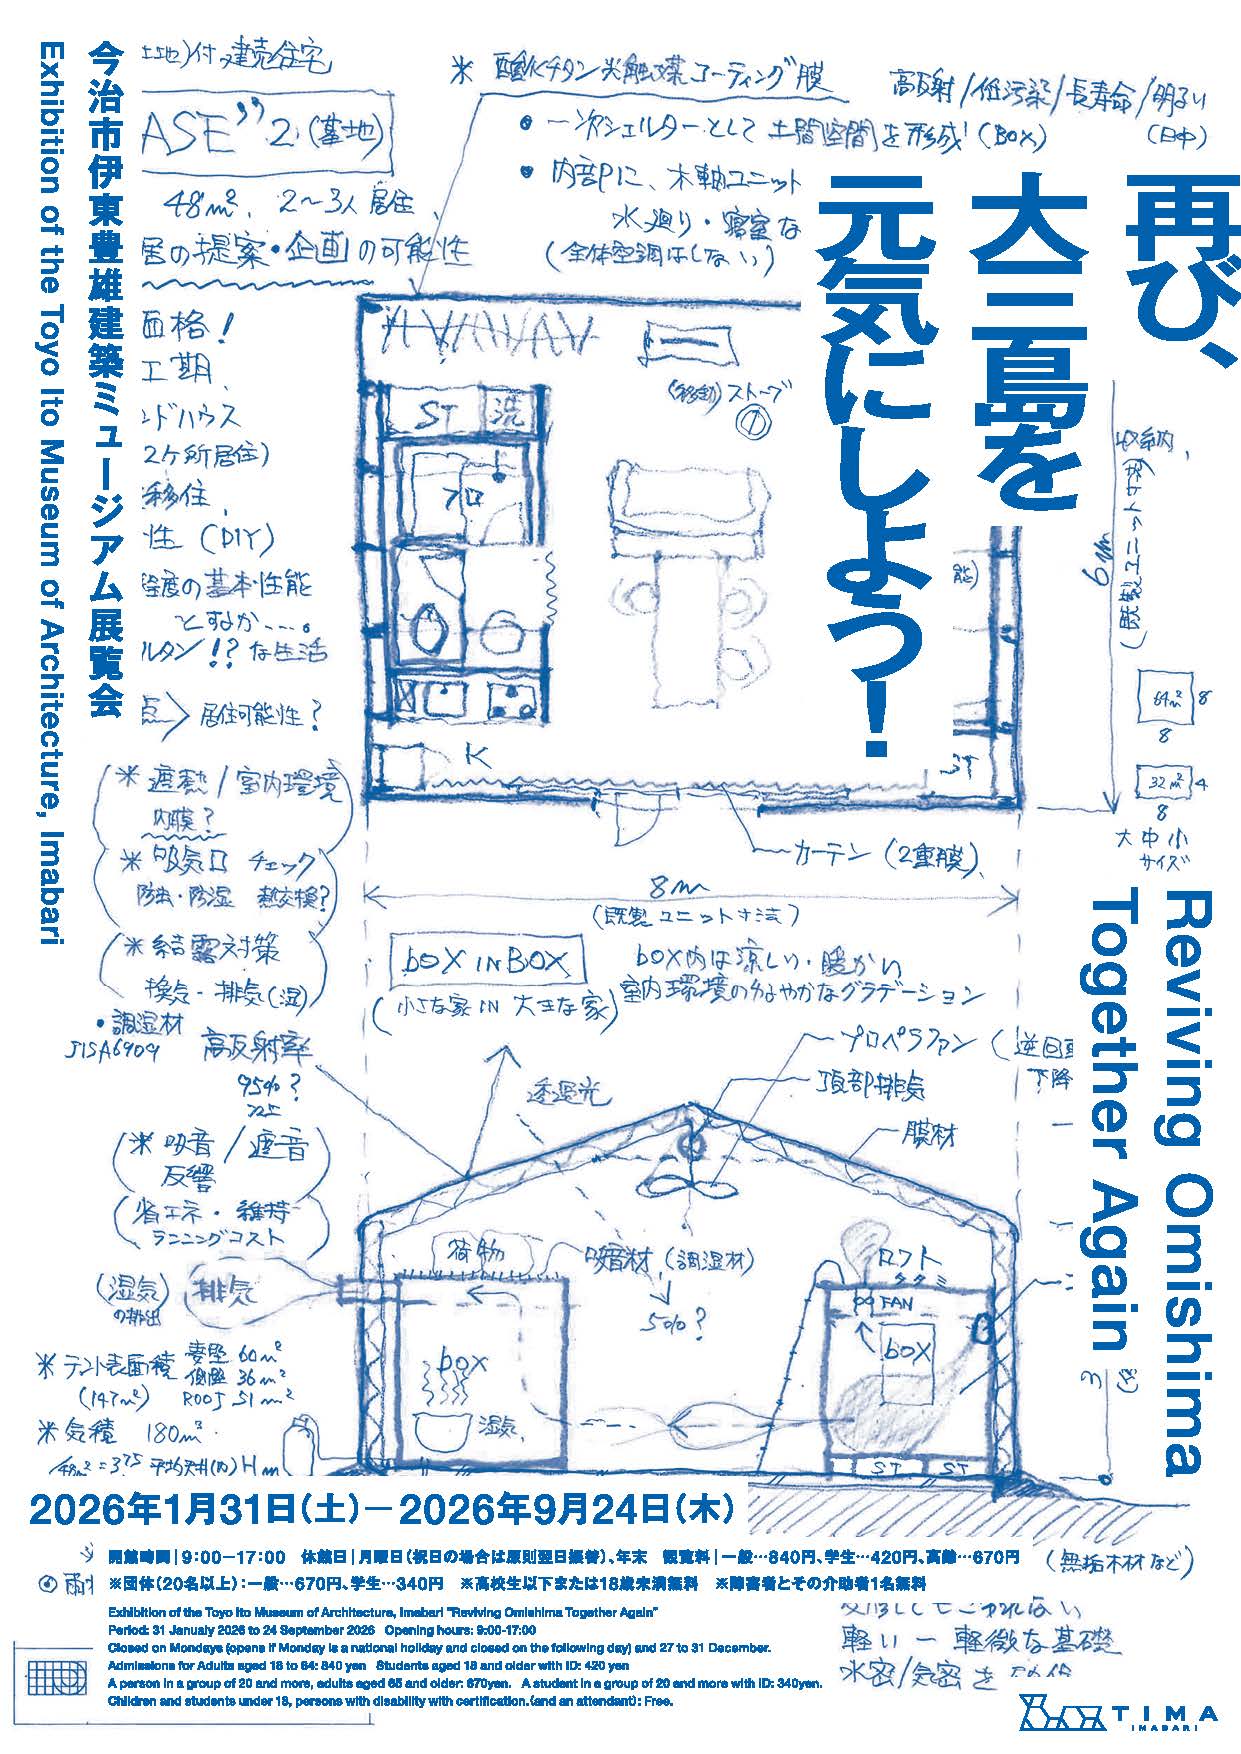 再び、
大三島を
元気にしよう!
Reviving Omishima
Together Again
今治市伊東豊雄建築ミュージアム展覧会
Exhibition of the Toyo Ito Museum of Architecture, Imabari
土地)付 建売住宅
ASE" 2 (基地)
48m², 2〜3人 居住
居の提案・企画の可能性
価格!
工期
ンドハウス
2ケ所居住)
移住
性 (DIY)
程度の基本性能
とすなか---。
ルタン!? な生活
点 > 居住可能性?
* 酸化チタン光触媒コーティング膜
高反射/低汚染/長寿命/明るい
(日中)
• 一次シェルターとして 土間空間を形成! (BOX)
• 内部に、木軸ユニット
水廻り・寝室な
(全体空調はしない)
(移動) ストーブ
ST 洗
フロ
K
ST
能)
収納内,
6m
(既製ユニット寸法)
64m² 8
8
32m² 4
8
大中小
サイズ
カーテン (2重膜)
8m
(既製ユニット寸法)
* 遮熱/室内環境
内膜?
* 吸気口 チェック
防虫・防湿 熱交換?
* 結露対策
換気・排気(湿)
• 調湿材
JISA6909
高反射率
95%?
* 吸音/遮音
反響
省エネ・維持
ランニングコスト
(湿気)
の排出
排気
BOX IN BOX
(小さな家 IN 大きな家)
BOX内は涼しい・暖かい
室内環境のゆるやかなグラデーション
透過光
プロペラファン (逆回
下降
頂部排気
膜材
荷物
吸音材 (調湿材)
50%?
ロフト
タタミ
FAN
BOX
BOX
湿気
ST ST
* テント表面積 妻壁 60m²
側壁 36m²
(147m²) ROOF 51m²
* 気積 180m³
2026年1月31日(土)—2026年9月24日(木)
開館時間|9:00−17:00 休館日|月曜日(祝日の場合は原則翌日振替)、年末 観覧料|一般…840円、学生…420円、高齢…670円
※団体(20名以上):一般…670円、学生…340円 ※高校生以下または18歳未満無料 ※障害者とその介助者1名無料
(無垢木材など)
Exhibition of the Toyo Ito Museum of Architecture, Imabari "Reviving Omishima Together Again"
Period: 31 January 2026 to 24 September 2026 Opening hours: 9:00-17:00
Closed on Mondays (opens if Monday is a national holiday and closed on the following day) and 27 to 31 December.
Admissions for Adults aged 18 to 64: 840 yen Students aged 18 and older with ID: 420 yen
A person in a group of 20 and more, adults aged 65 and older: 670yen. A student in a group of 20 and more with ID: 340yen.
Children and students under 18, persons with disability with certification.(and an attendant): Free.
軽い — 軽微な基礎
水密/気密を
TIMA
IMABARI